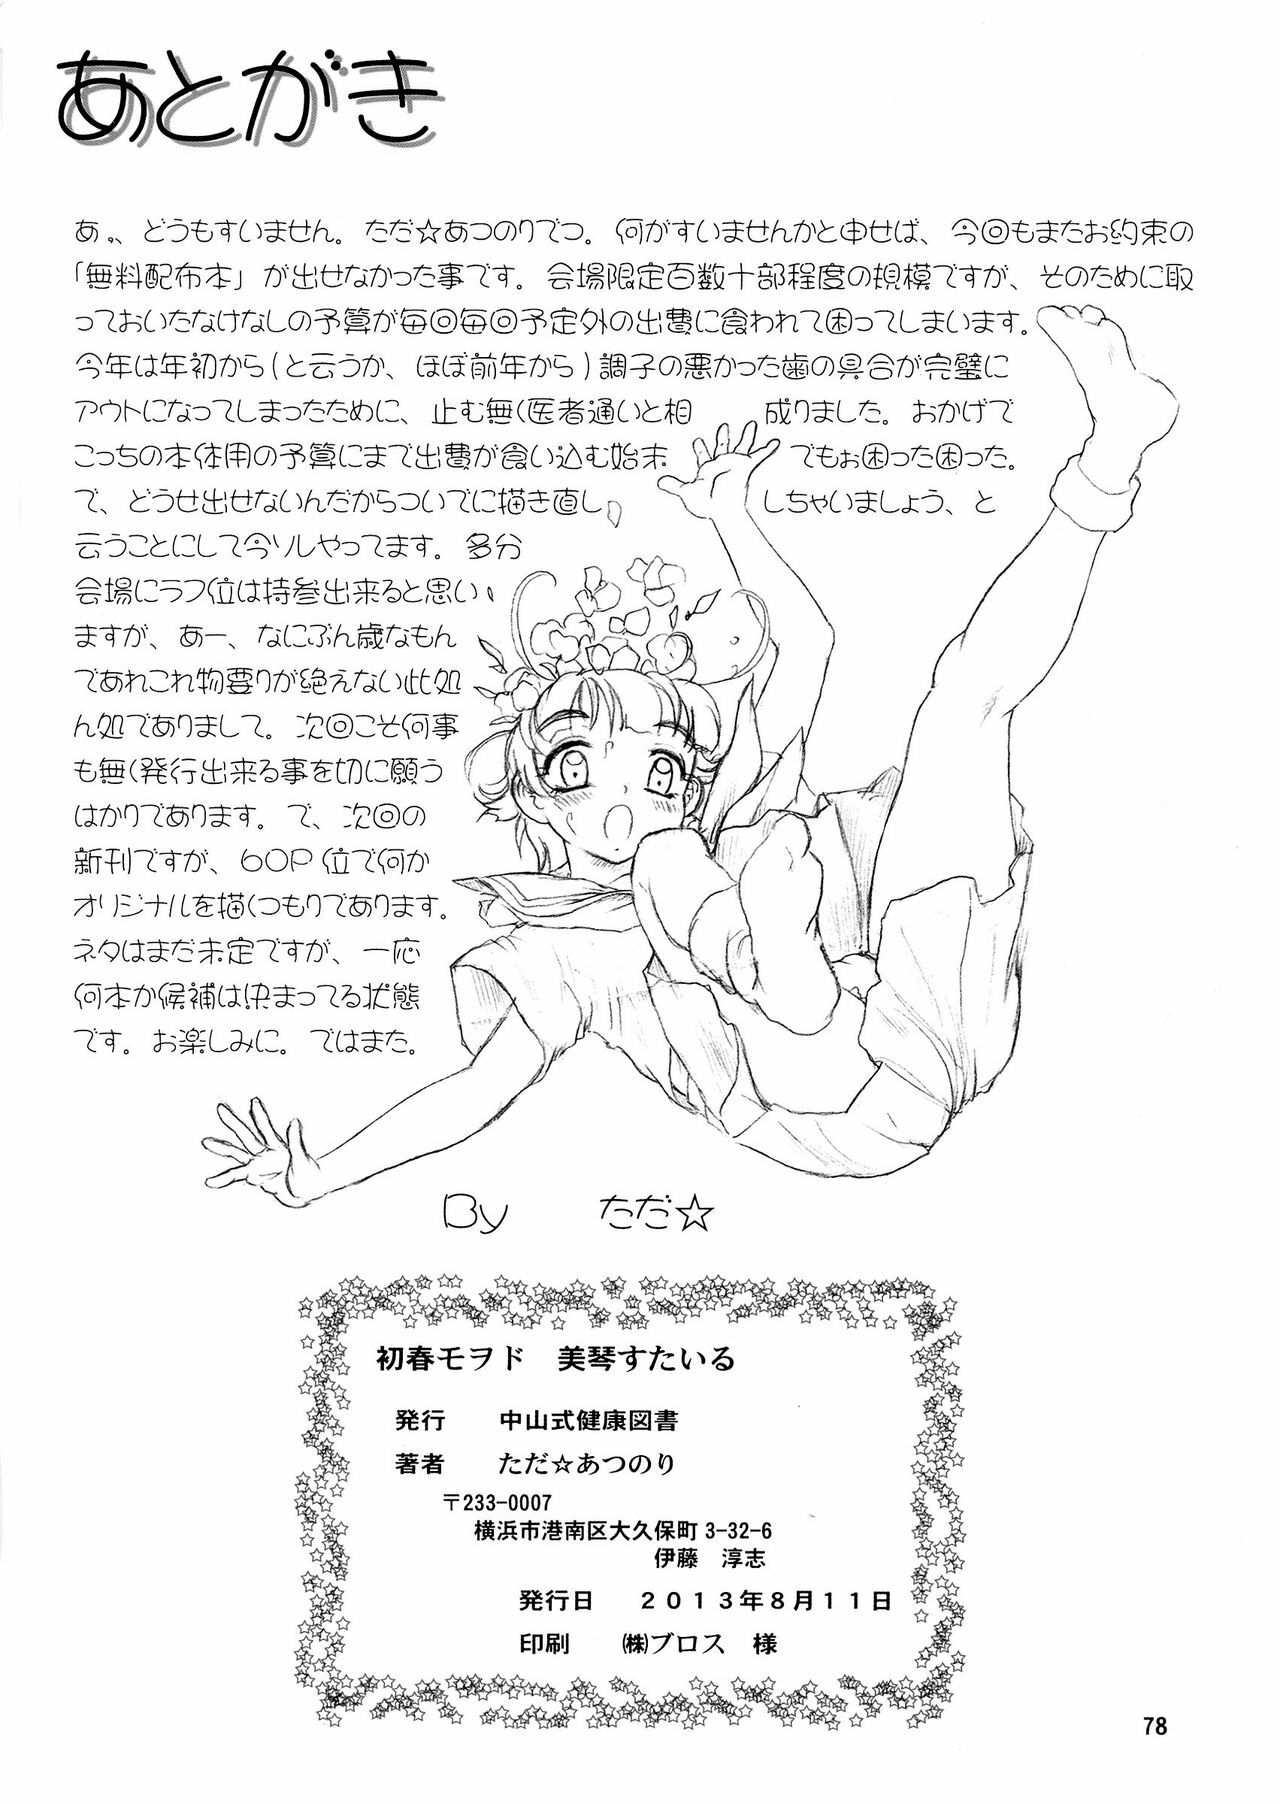 あとがき
あ、、どうもすいません。ただ☆あつのりでつ。何がすいませんかと申せば、今回もまたお約束の
「無料配布本」が出せなかった事です。会場限定百数十部程度の規模ですが、そのために取
っておいたなけなしの予算が毎回毎回予定外の出費に食われて困ってしまいます。
今年は年初から(と云うか、ほぼ前年から)調子の悪かった歯の具合が完璧に
アウトになってしまったために、止む無く医者通いと相成りました。おかげで
こっちの本体用の予算にまで出費が食い込む始末でもぉ困った困った。
で、どうせ出せないんだからついでに描き直ししちゃいましょう、と
云うことにして今ソレやってます。多分
会場にラフ位は持参出来ると思い
ますが、あー、なにぶん歳なもん
であれこれ物要りが絶えない此処
ん処でありまして。次回こそ何事
も無く発行出来る事を切に願う
ばかりであります。で、次回の
新刊ですが、60P位で何か
オリジナルを描くつもりであります。
ネタはまだ未定ですが、一応
何本か候補は決まってる状態
です。お楽しみに。ではまた。
By ただ☆
初春モヲド 美琴すたいる
発行 中山式健康図書
著者 ただ☆あつのり
〒233-0007
横浜市港南区大久保町 3-32-6
伊藤 淳志
発行日 2013年8月11日
印刷 ㈱ブロス 様
78